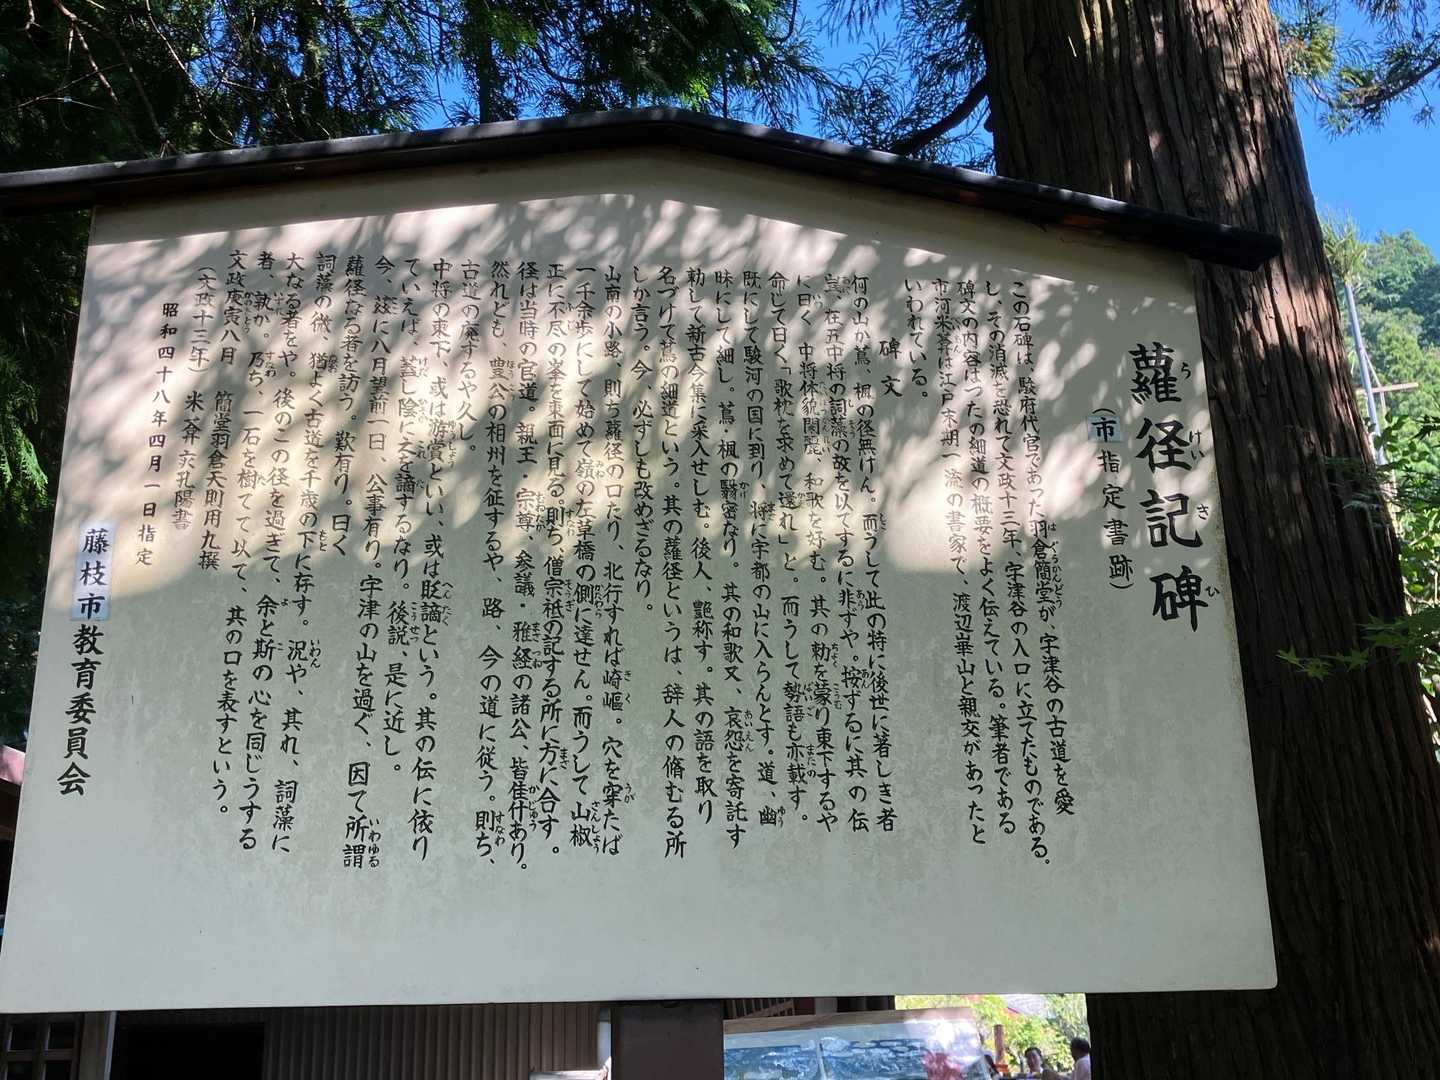 蘿径記碑
(市指定書跡)
この石碑は、駿府代官であった羽倉簡堂が、宇津谷の古道を愛
し、その消滅を恐れて文政十三年、宇津谷の入口に立てたものである。
碑文の内容はつたの細道の概要をよく伝えている。筆者である
市河米菴は江戸末期一流の書家で、渡辺崋山と親交があったと
いわれている。
碑文
何の山か蔦、楓の径無けん。而うして此の特に後世に著しき者
は、在五中将の詞藻の故を以てするに非ずや。按ずるに其の伝
に曰く、中将体貌閑麗、和歌を好む。其の勅を蒙り東下するや
命じて曰く、「歌枕を求めて還れ」と。而うして勢語も亦載す。
既にして駿河の国に到り、将に宇都の山に入らんとす。道、幽
昧にして細し。蔦・楓の翳密なり。其の和歌又、哀怨を寄託す
勅して新古今集に采入せしむ。後人、艶称す。其の語を取り
名づけて蔦の細道という。其の蘿径というは、辞人の脩むる所
しか言う。今、必ずしも改めざるなり。
山南の小路、則ち蘿径の口たり、北行すれば崎嶇。穴を穿たば
一千余歩にして始めて嶺の左草橋の側に達せん。而うして山椒
正に不尽の峯を東面に見る。則ち、僧宗祗の記する所に方に合す。
径は当時の官道。親王・宗尊、参議・雅経の諸公、皆佳什あり。
然れども、豊公の相州を征するや、路、今の道に従う。則ち、
古道の廃するや久し。
中将の東下、或は游賞といい、或は貶謫という。其の伝に依り
ていえば、蓋し陰に之を謫するなり。後説、是に近し。
今、茲に八月望前一日、公事有り。宇津の山を過ぐ、因て所謂
蘿径なる者を訪う。歎有り。曰く
詞藻の微、猶よく古道を千歳の下に存す。況や、其れ、詞藻に
大なる者をや。後のこの径を過ぎて、余と斯の心を同じうする
者、孰か。乃ち、一石を樹てて以て、其の口を表すという。
文政庚寅八月　簡堂羽倉天則用九撰
(文政十三年)　米菴　河三亥孔陽書
昭和四十八年四月一日指定
藤枝市教育委員会